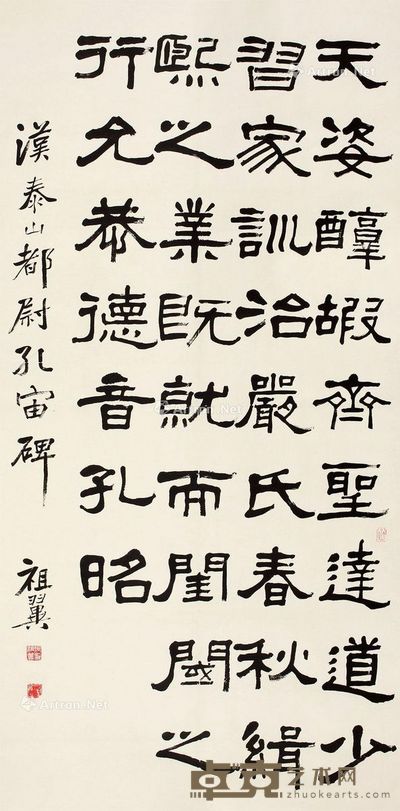 天姿醇嘏齊聖達道少
習家訓治嚴氏春秋緝
熙之業既就而閨閾之
行允恭德音孔昭
漢泰山都尉孔宙碑
祖翼
Artron.Net
卓克艺术网
zhuokearts.com